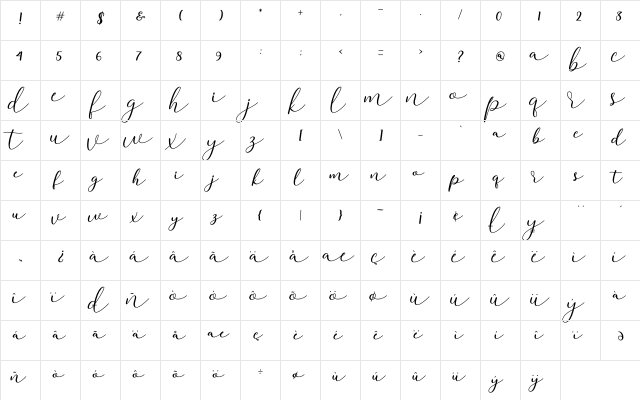 ! # $ & ( ) * + , - . / 0 1 2 3
4 5 6 7 8 9 : ; < = > ? @ a b c
d e f g h i j k l m n o p q r s
t u v w x y z [ \ ] _ ` a b c d
e f g h i j k l m n o p q r s t
u v w x y z { | } ~ ¡ ¢ ł ý ¨ ´
¸ ¿ à á â ã ä å æ ç è é ê ë ì í
î ï d ñ ò ó ô õ ö ø ù ú û ü ý à
á â ã ä å æ ç è é ê ë ì í î ï ð
ñ ò ó ô õ ö ÷ ø ù ú û ü ý ÿ